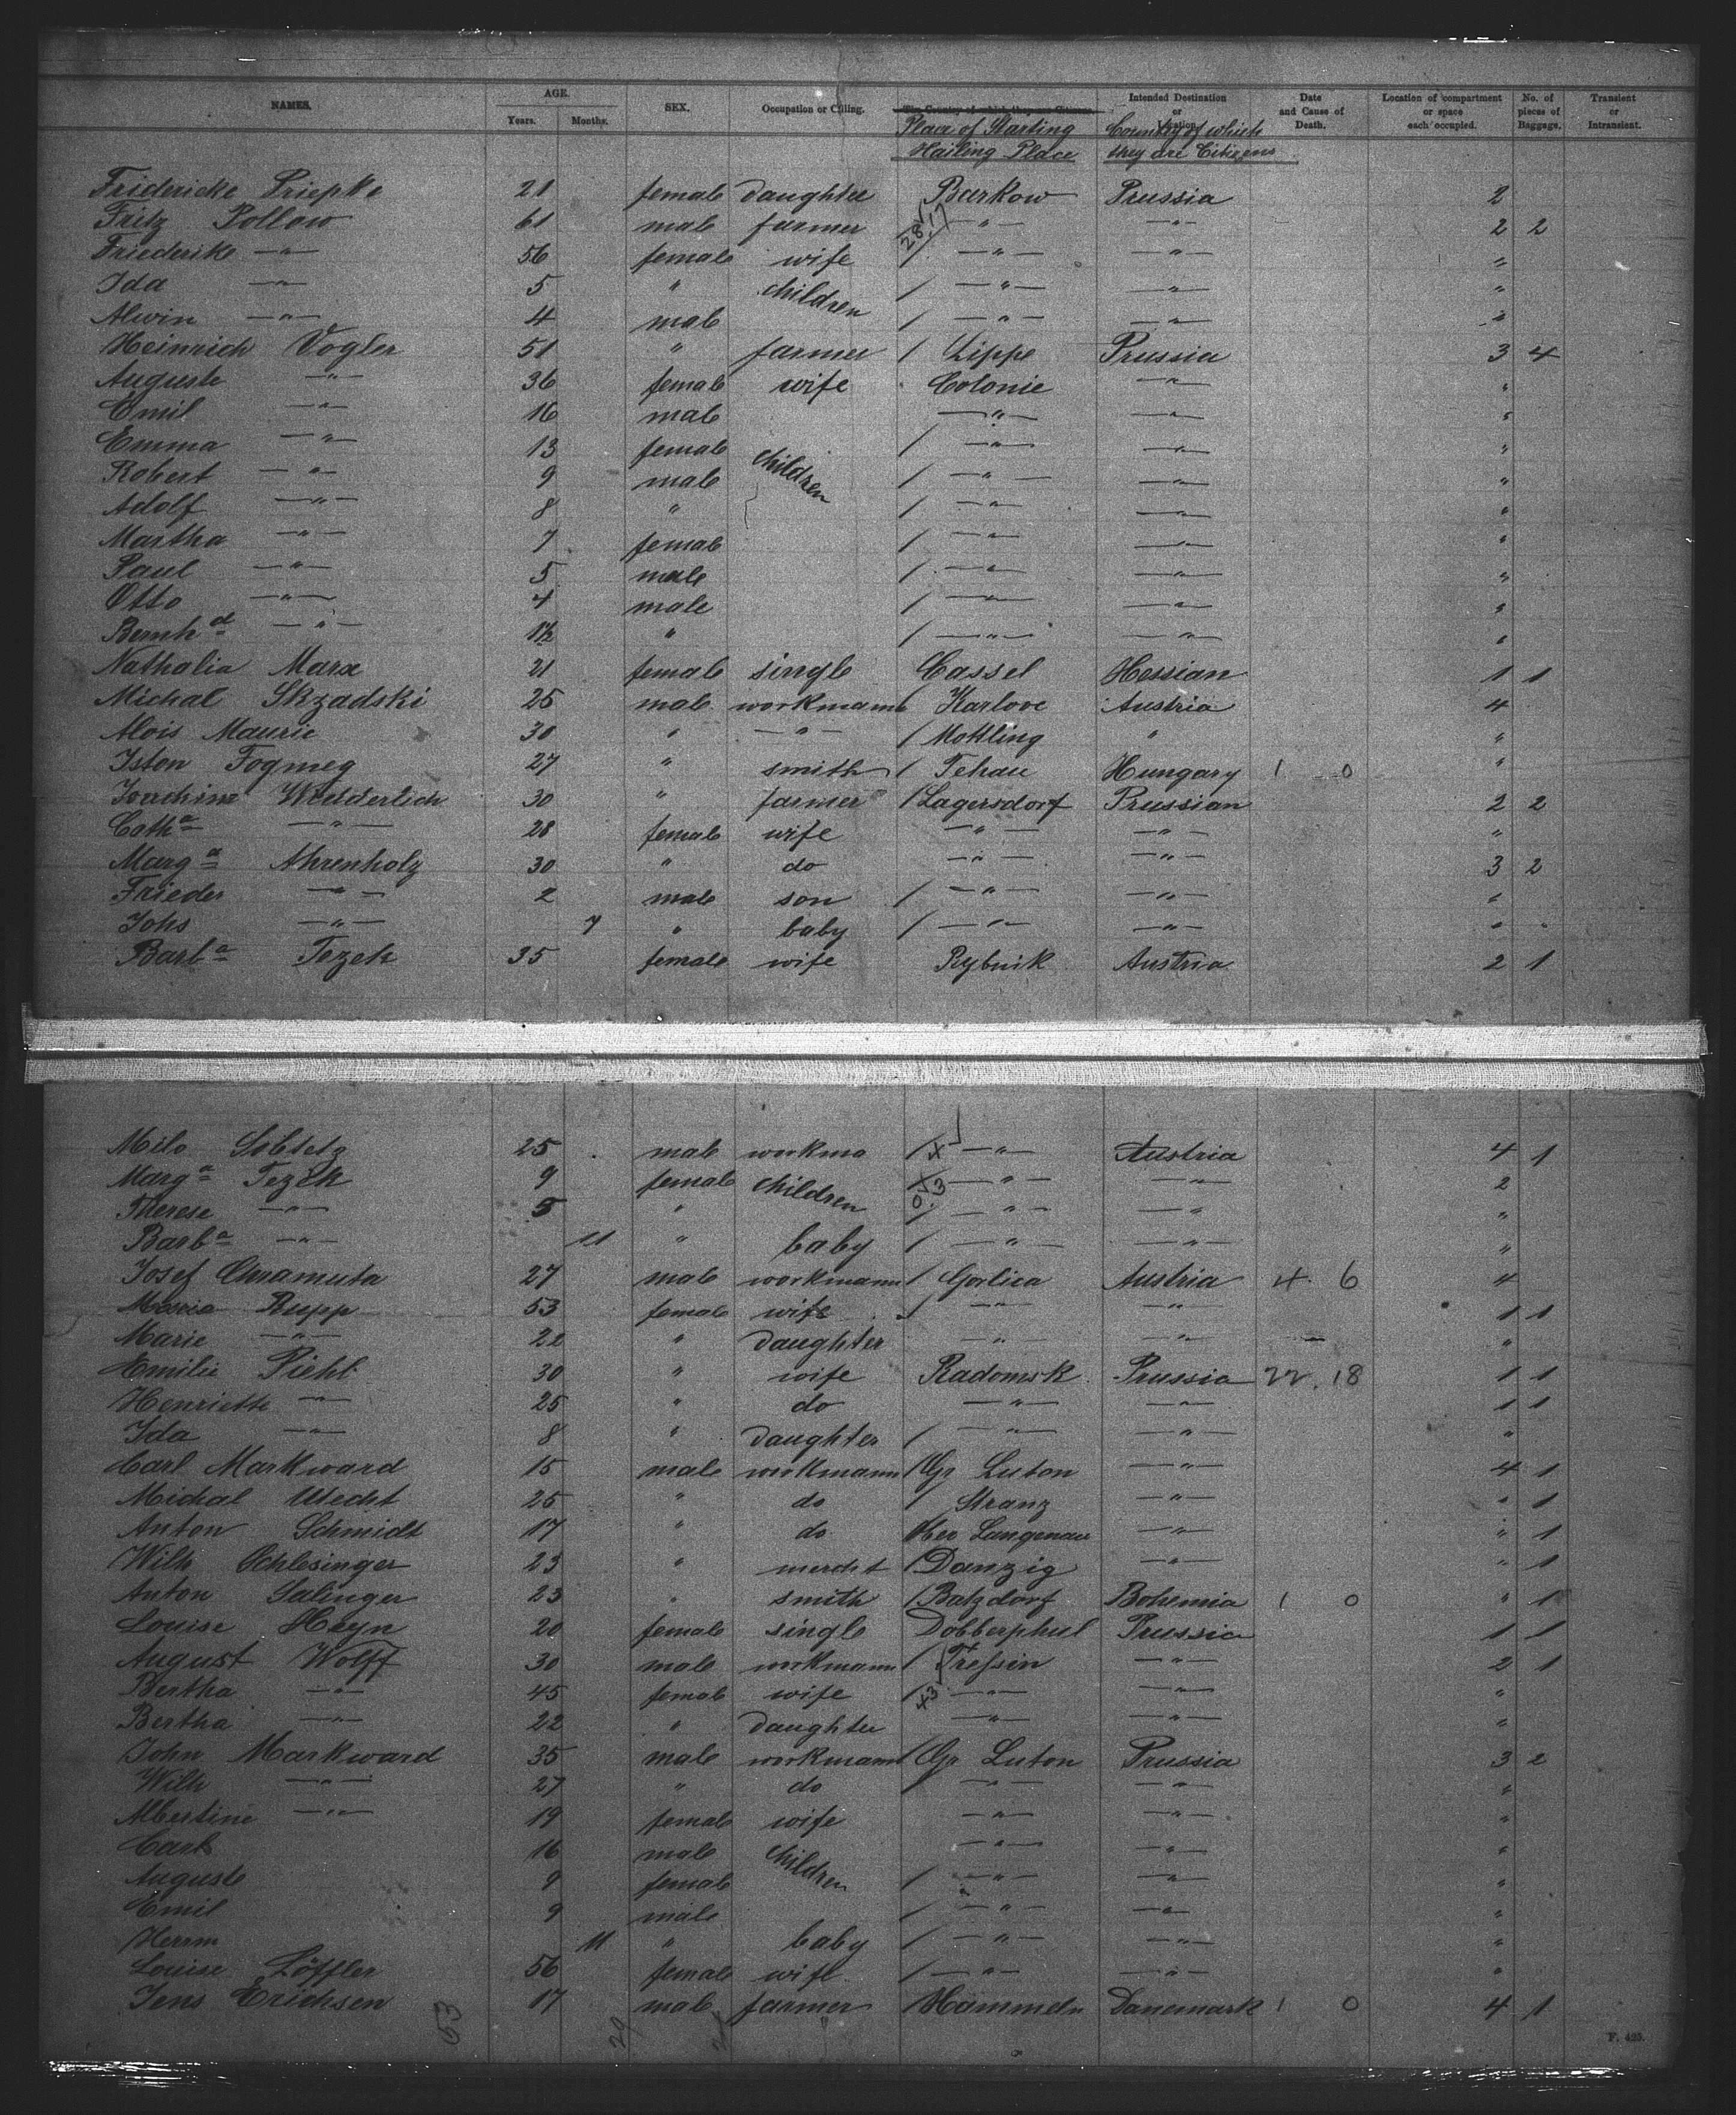 NAMES. AGE. Years. Months. SEX. Occupation or Calling. The Country of which they are Citizens. Intended Destination or Location. Date and Cause of Death. Location of compartment or space each occupied. No. of pieces of Baggage. Transient or Intransient.
Place of Starting Country of which
Hailing Place they are Citizens
Fridericke Priepke 21 female daughter Barkow Prussia 2
Fritz Pollow 61 male farmer —"— —"— 2 2
Friederike —"— 56 female wife / —"— —"— "
Ida —"— 5 " children / —"— —"— "
Alwin —"— 4 male / —"— —"— "
Heinrich Vogler 51 " farmer / Lippe Prussia 3 4
Auguste —"— 36 female wife Colonie —"— "
Emil —"— 16 male —"— —"— "
Emma —"— 13 female / —"— —"— "
Robert —"— 9 male children / —"— —"— "
Adolf —"— 8 " / —"— —"— "
Martha —"— 7 female / —"— —"— "
Paul —"— 5 male / —"— —"— "
Otto —"— 4 male / —"— —"— "
Bernhd —"— 1½ " / —"— —"— "
Nathalia Marx 21 female single Cassel Hessian 1 1
Michal Skzadski 25 male workmann / Karlove Austria 4
Alois Mauric 30 " —"— / Mottling " "
Iston Fogmeg 27 " smith / Tehau Hungary 1 0 "
Joachim Wedderlich 30 " farmer / Lagersdorf Prussian 2 2
Catha —"— 28 female wife —"— —"— "
Marga Ahrenholz 30 " do —"— —"— 3 2
Frieder —"— 2 male son / —"— —"— "
Johs —"— 7 " baby / —"— —"— " "
Barba Tezek 35 female wife Rybnik Austria 2 1
Milo 25 male workma / —"— Austria 4 1
Marga Tezek 9 female children —"— —"— 2
Therese —"— 5 " / —"— —"— "
Barba —"— 11 " baby / —"— —"— "
Josef Chramuta 27 male workmann / Gorlica Austria 4. 6 4
Maria Rupp 53 female wife / —"— —"— 1 1
Marie —"— 22 " daughter —"— —"— "
Emilie Piehl 30 " wife Radomsk Prussia 22. 18 1 1
Henriette —"— 25 " do —"— —"— 1 1
Ida —"— 8 " daughter / —"— —"— "
Carl Markward 15 male workmann / Gr Luton —"— 4 1
Michal Utecht 25 " do / Stranz —"— " 1
Anton Schmidt 17 " do Langenau —"— " 1
Wilh Schlesinger 23 " mercht / Danzig —"— " 1
Anton Salinger 23 " smith / Batzdorf Bohemia 1 0 " 1
Louise Heyn 20 female single Dobberphul Prussia 1 1
August Wolff 30 male workmann / Tressin —"— 2 1
Bertha —"— 45 female wife / —"— —"— "
Bertha —"— 22 " daughter —"— —"— "
John Markward 35 male workmann / Gr Luton Prussia 3 2
Wilh —"— 27 " do / —"— —"— "
Albertine —"— 19 female wife —"— —"— "
Carl 16 male children —"— —"— "
Auguste 9 female / —"— —"— "
Emil 9 male / —"— —"— "
Herrm 11 " baby / —"— —"— "
Louise Löffler 56 female wife / —"— —"— "
Jens Erichsen 17 male farmer Hammeln Danemark 1 0 4 1
F. 425.